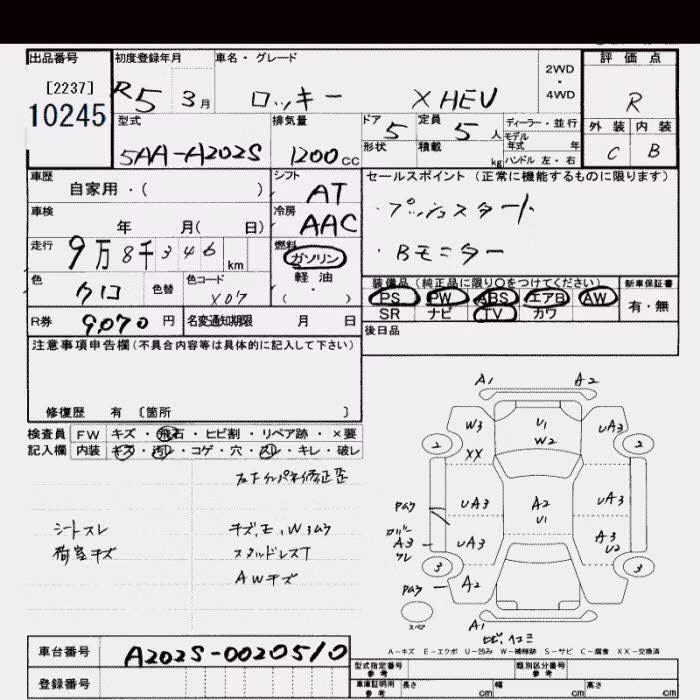 出品番号 初度登録年月 車名・グレード 評価点
[2237] 10245
R5 3月 ロッキー X HEV 2WD・4WD R
型式 排気量 ドア 5 定員 5人 ディーラー・並行 外装 内装
5AA-A202S 1200cc 形状 積載 kg モデル年式 年 ハンドル 左・右 C B
車歴 自家用・( ) シフト AT セールスポイント (正常に機能するものに限ります)
車検 年 月( 日) 冷房 AAC ・プッシュスタート
走行 9万8千346km 燃料 ガソリン・軽油・( ) ・Bモニター
色 クロ 色替 色コード X07 装備品 (純正品に限り○をつけてください) 新車保証書
PS PW ABS エアB AW 有・無
SR ナビ TV カワ
R券 9,070円 名変通知期限 月 日 後日品
注意事項申告欄 (不具合内容等は具体的に記入して下さい)
修復歴 有 〔箇所 〕
検査員 FW キズ・飛石・ヒビ割・リペア跡・×要
記入欄 内装 キズ・汚レ・コゲ・穴・スレ・キレ・破レ
シートスレ キズ、エ、W3ムラ
荷室キズ スタッドレスT
AWキズ
A1 A2
W3 U1 W2 UA3
XX
2 2
UA3 A2 U1 UA3
A3 UA3 A3 U2
3 3
A2
A1
スペア
A-キズ E-エクボ U-凹み W-補修跡 S-サビ C-腐食 XX-交換済
車台番号 A202S-0020510
登録番号
型式指定番号 参考 類別区分番号 参考
車庫証明用 参考 長さ cm 幅 cm 高さ cm